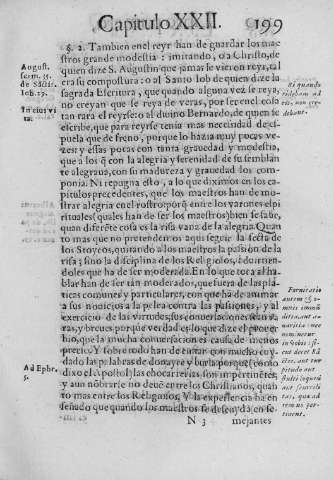 Capitulo XXII. 199
§. 2. Tambien en el reyr han de guardar los maestros
grande modestia : imitando, o a Christo, de
quien dize S. Augustin que jamas le vieron reyr, tal
era su compostura : o al santo Iob de quien dize la
sagrada Escritura, que quando alguna vez se reya,
no creyan que se reya de veras, por ser en el cosa
tan rara el reyrse: o al diuino Bernardo, de quien se
escribe, que para reyrse tenia mas necessidad de espuela
que de freno, porque lo hazia muy pocas vezes
y essas pocas con tanta grauedad y modestia,
que a los q̃ con la alegria y serenidad de su semblante
alegraua, con su madureza y grauedad los componia.
Ni repugna esto, a lo que diximos en los capitulos
precedentes, que los maestros han de mostrar
alegria en el rostro: porq̃ entre los varones espirituales
(quales han de ser los maestros) bien se sabe,
quan diferẽte cosa es la risa vana de la alegria. Quanto
mas que no pretendemos aqui seguir la secta de
los Stoycos, quitando a los maestros la passion de la
risa; sino la disciplina de los Religiosos,
que ha de ser moderada. En lo que toca al hablar
han de ser tãn moderados, que fuera de las platicas
comunes y particulares, con que ha de animar
a sus nouicios a la pelea contra las passiones, y al
exercicio de las virtudes, sus conuersaciones sean raras,
y breues porque verdad es lo que dize el prouerbio,
que la mucha conuersacion es causa de menosprecio.
Y sobre todo han de euitar con mucho cuydado
las palabras de donayre y burla porque (como
dixo el Apostol) las chocarrerias son impertinẽtes,
y aun nõbrarse no deuẽ entre los Christianos, quanto
mas entre los Religiosos. Y la experiencia ha enseñado
que quando los maestros se descuydã, en se-
N 3 mejantes
August.
serm. 35.
de Sãctis.
Iob. 29.
In eius vita.
Ad Ephe.
5.
Si quando
ridebam ad
eos, non credebant.
Fornicatio
autem &
omnis immũditia,
aut auaritia
nec nominetur
in vobis sicut
decet sãctos,
aut turpitudo
aut stultiloquiũ
aut scurrilitas,
quæ ad
rem non pertinent.